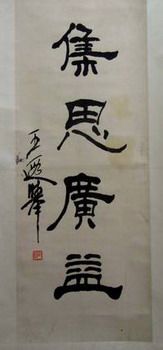 集思廣益
王遐舉